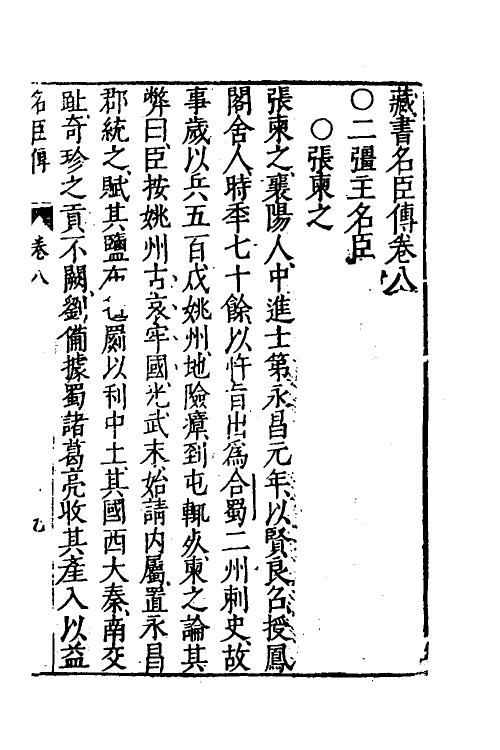 藏書名臣傳卷八
○二彊主名臣
○張柬之
張柬之襄陽人中進士第永昌元年以賢良召授鳳
閣舍人時季七十餘以忤旨出爲合蜀二州刺史故
事歲以兵五百戍姚州地險瘴到屯輒死柬之論其
弊曰臣按姚州古哀牢國光武末始請内屬置永昌
郡統之賦其鹽布 罽以利中土其國西大秦南交
趾奇珍之貢不闕劉備據蜀諸葛亮收其產入以益
名臣傳 卷八 乙